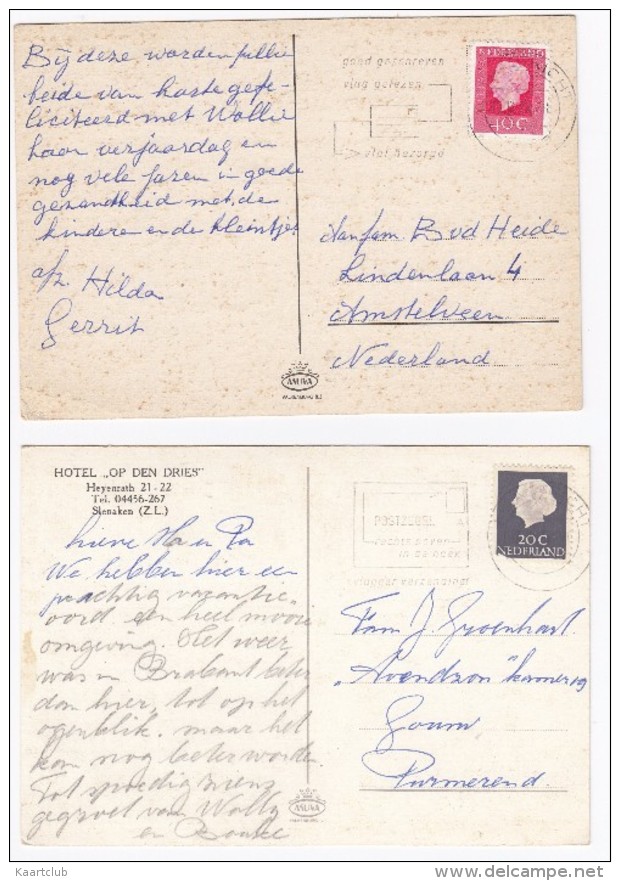 Bij deze worden jullie
beide van harte gefe-
liciteerd met Wollie
haar verjaardag en
nog vele jaren in goede
gezondheid met de
kindere en de kleintjes
afz. Hilda
Gerrit
goed geschreven
vlug gelezen
vlot bezorgd
NEDERLAND
40C
Aan fam. Bud Heide
Lindenlaan 4
Amstelveen
Nederland
HOTEL „OP DEN DRIES"
Heyenrath 21-22
Tel. 04456-267
Slenaken (Z.L.)
lieve Ma en Pa
We hebben hier een
prachtig vacantie
oord en heel mooie
omgeving. Het weer
was in Brabant beter
dan hier, tot op het
ogenblik. maar het
kan nog beter worden.
Tot spoedig ziens
gegroet van Wolly
en
POSTZEGEL
rechts boven
in de hoek
20C
NEDERLAND
Fam J. Groenhart
„Avondzon" kamer 19
Gouw
Purmerend.
Kaartclub
delcampe.net